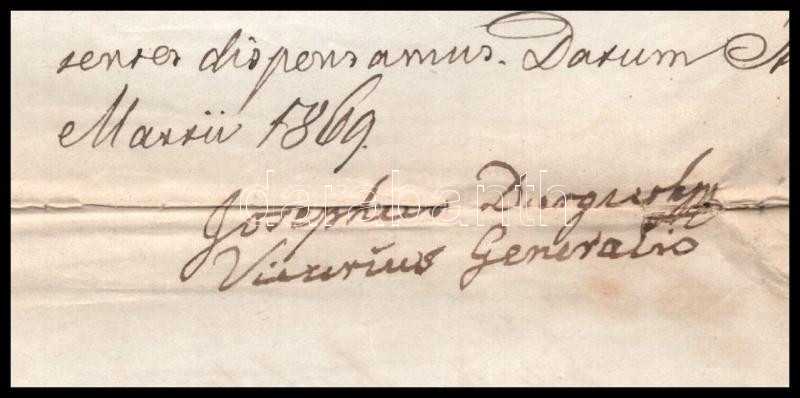 sentes dispensamus. Datum
Martii 1869.
Josephus Durguth
Vicarius Generalis
darabanth